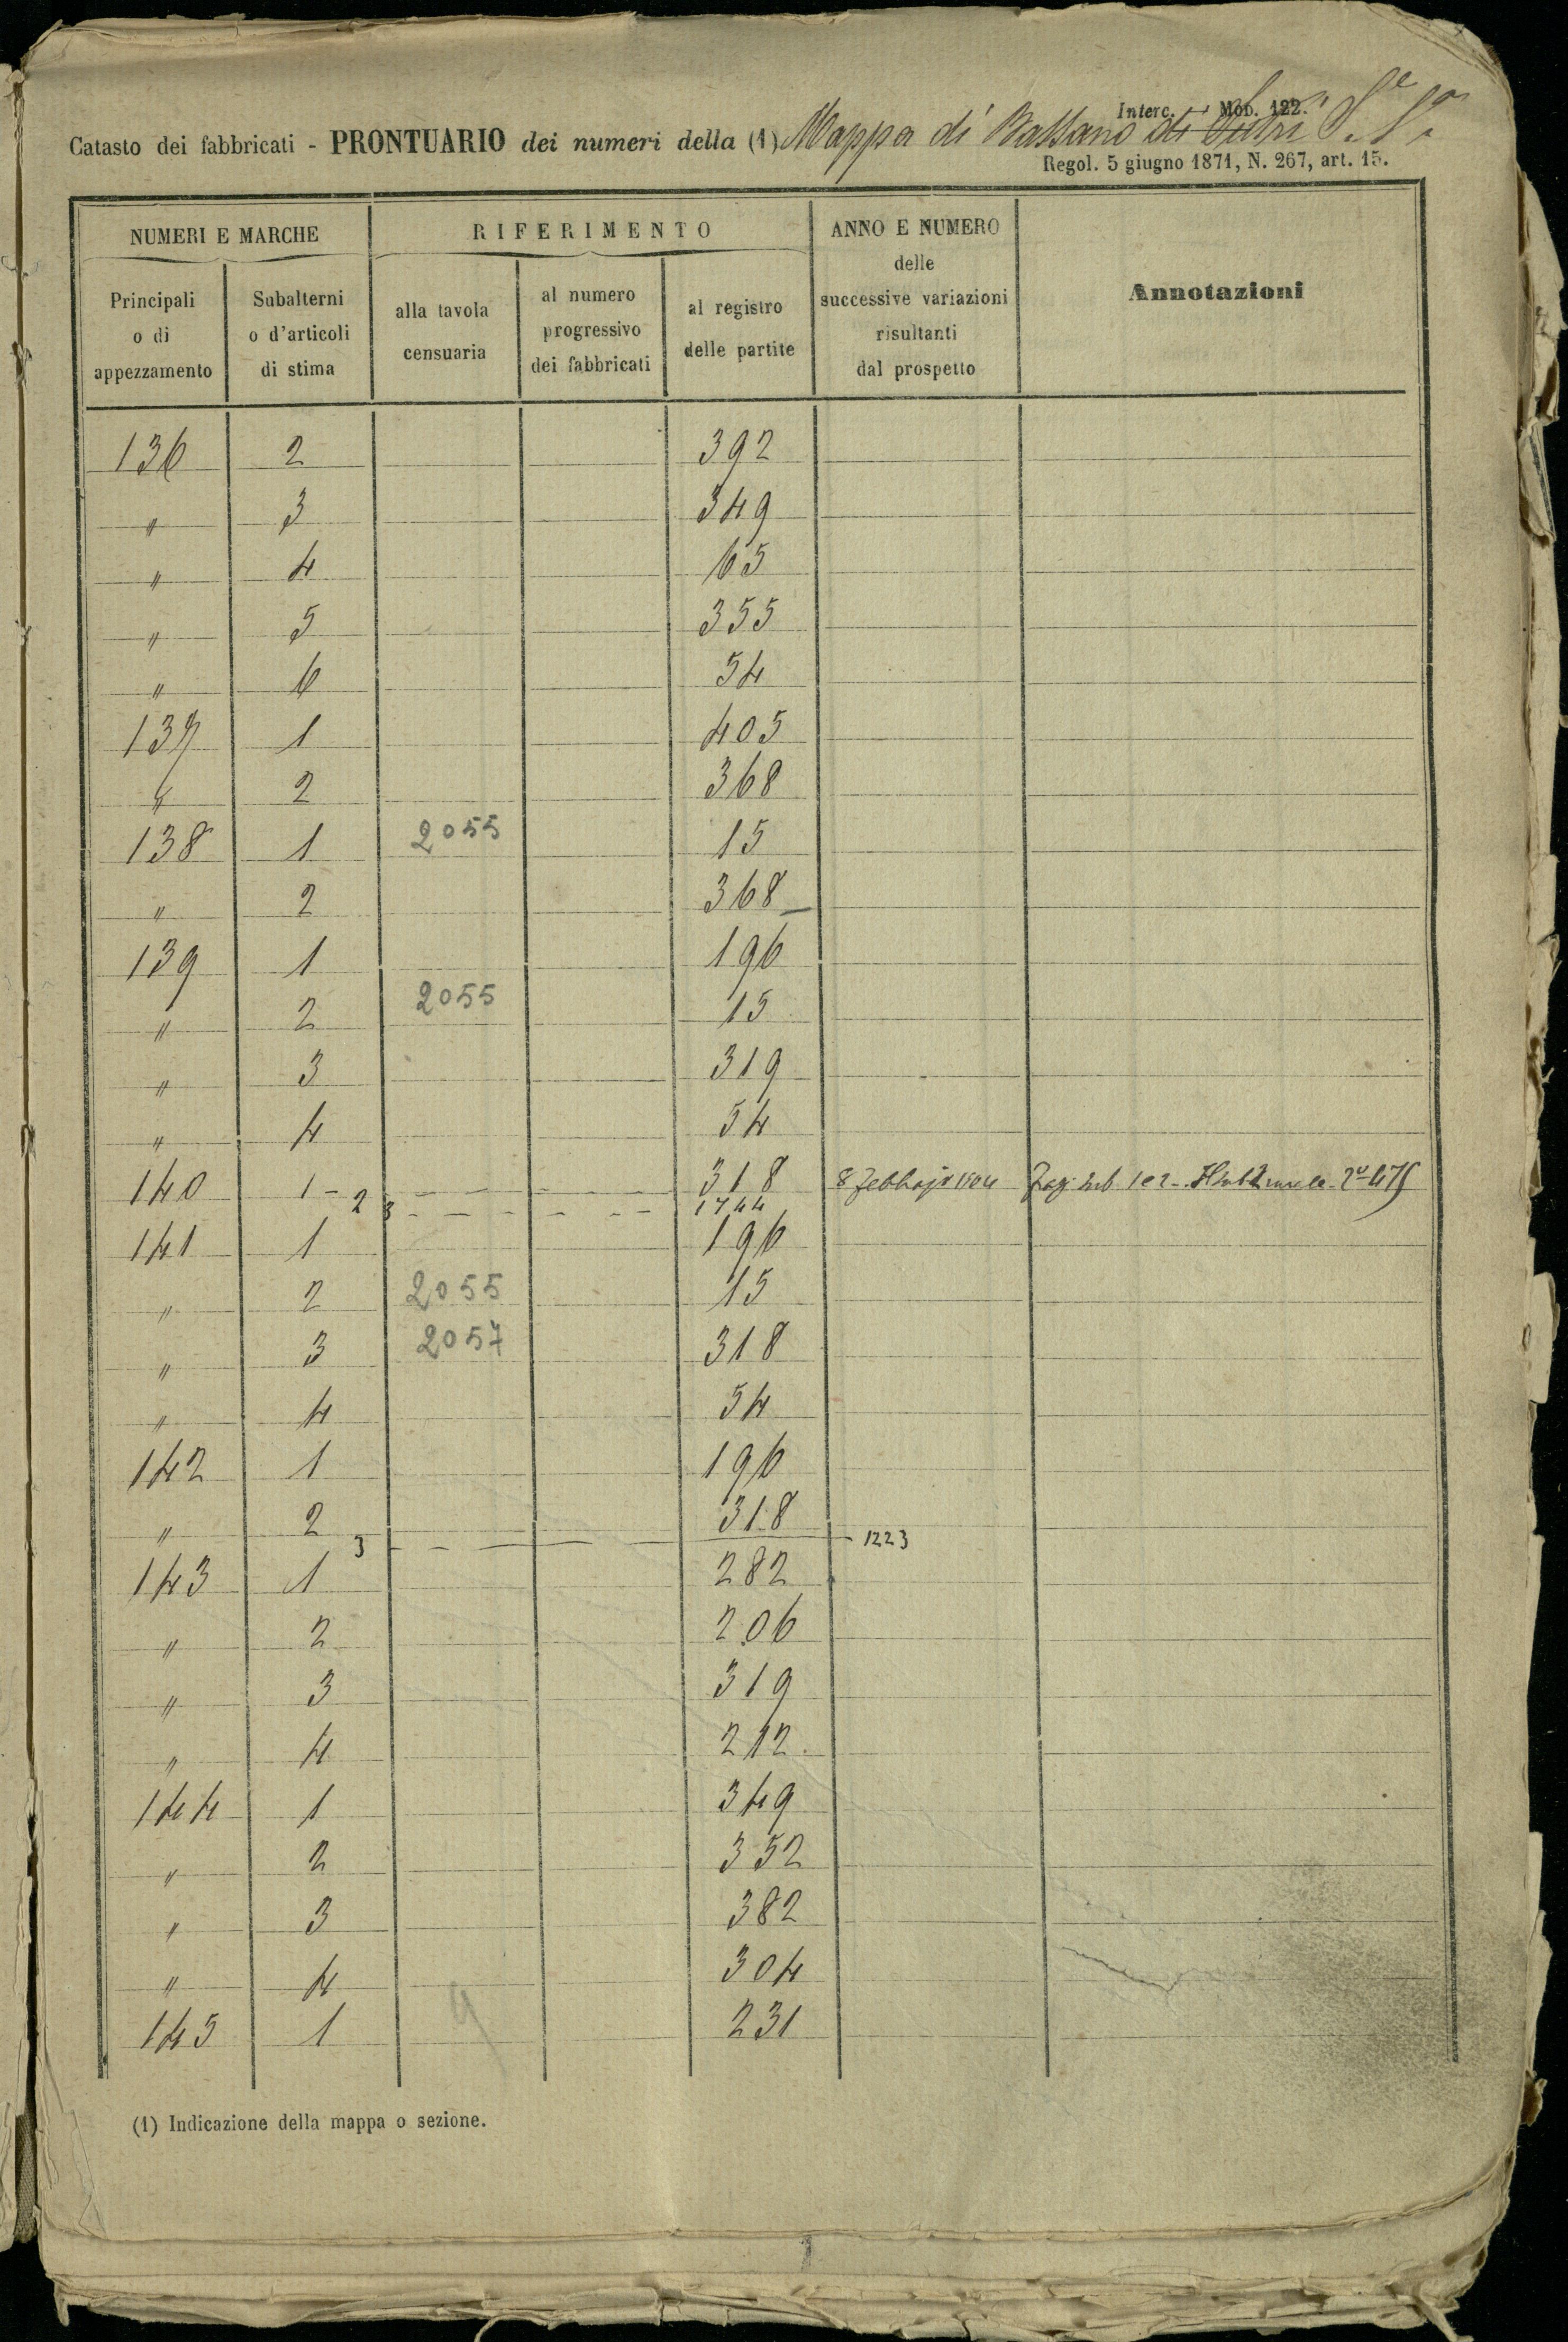 Interc. Mod. 122.
Catasto dei fabbricati - PRONTUARIO dei numeri della (1) Mappa di Bassano di Sutri Se. 1a
Regol. 5 giugno 1871, N. 267, art. 15.
NUMERI E MARCHE RIFERIMENTO ANNO E NUMERO delle successive variazioni risultanti dal prospetto Annotazioni
Principali o di appezzamento Subalterni o d'articoli di stima alla tavola censuaria al numero progressivo dei fabbricati al registro delle partite
136 2 392
" 3 349
" 4 65
" 5 355
" 6 54
137 1 405
" 2 368
138 1 2055 15
" 2 368
139 1 196
" 2 2055 15
" 3 319
" 4 54
140 1 - 2 318 8 Febbrajo
3 1744
141 1 196
" 2 2055 15
" 3 2057 318
" 4 54
142 1 196
" 2 318
3 - 1223
143 1 282
" 2 206
" 3 319
" 4 212
144 1 349
" 2 352
" 3 382
" 4 304
145 1 231
(1) Indicazione della mappa o sezione.